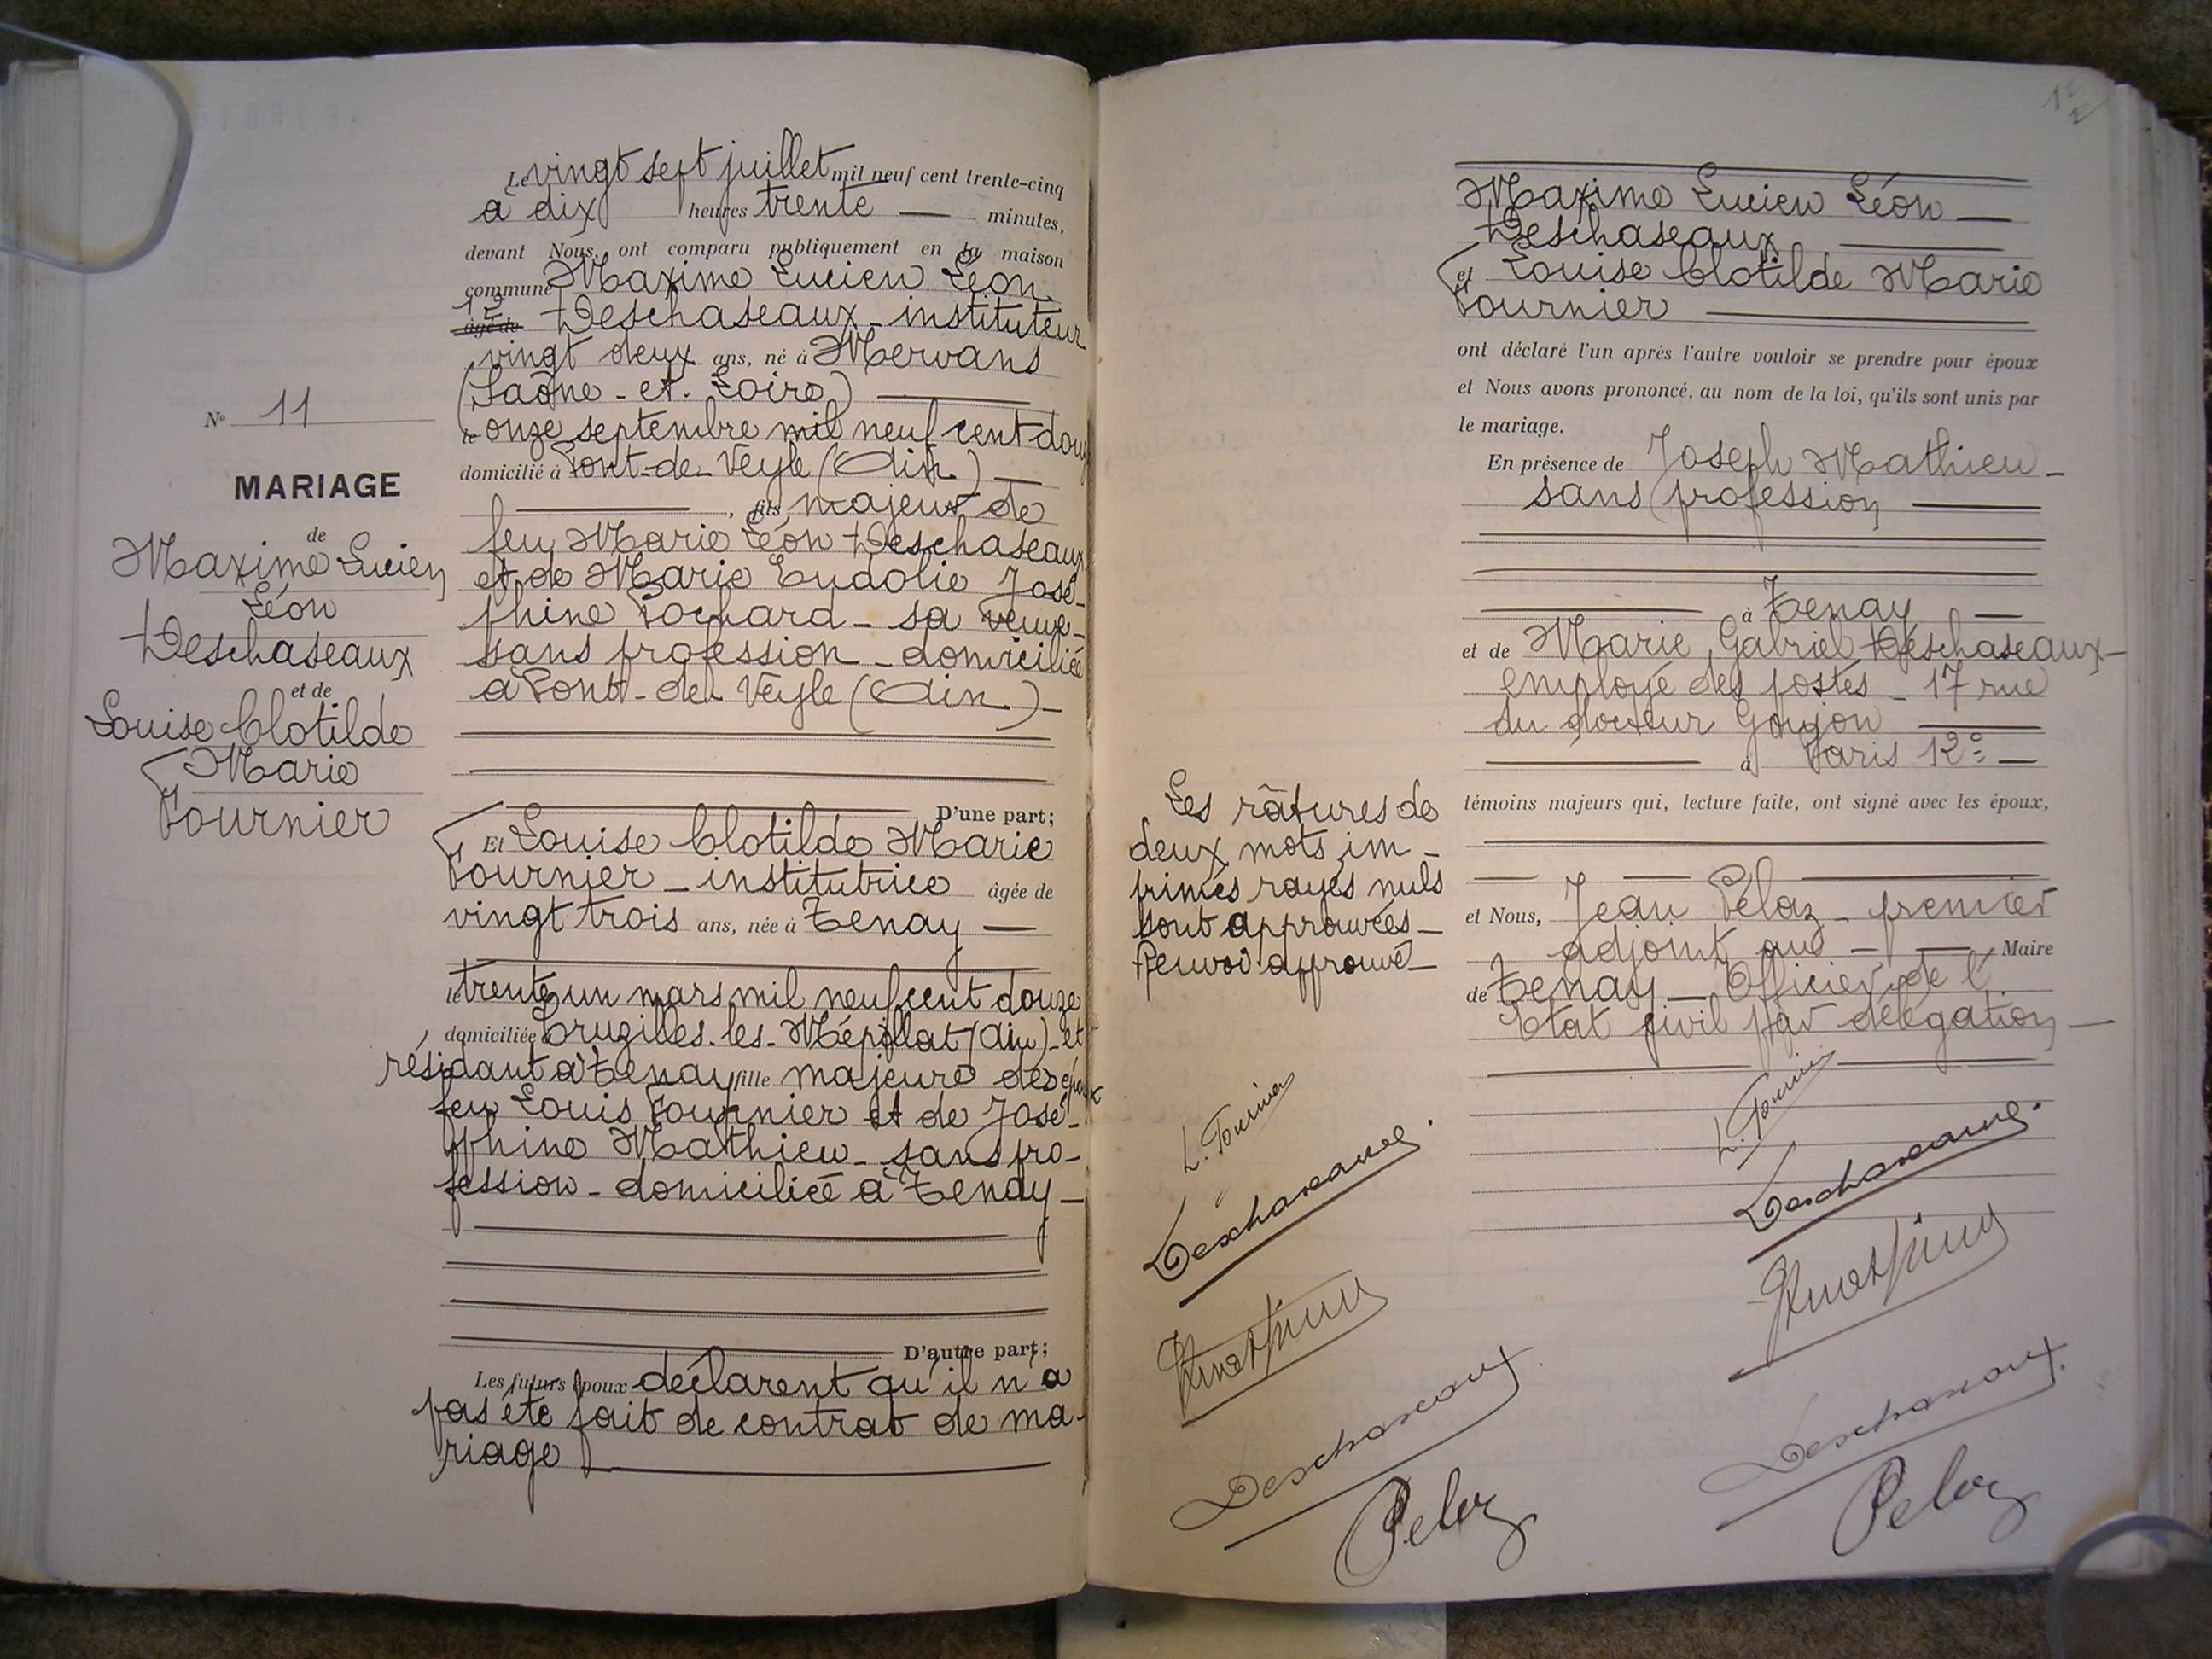 Le vingt sept juillet mil neuf cent trente-cinq
à dix heures trente — minutes,
devant Nous, ont comparu publiquement en la maison
commune Maxime Lucien Léon
âgé de Deschaseaux - instituteur
vingt deux ans, né à Mervans
(Saône - et - Loire)
le onze septembre mil neuf cent douze
domicilié à Pont-de-Veyle (Ain) —
, fils majeur de
feu Marie Léon Deschaseaux
et de Marie Eudolie José-
phine Pochard - sa veuve -
sans profession - domiciliée
à Pont-de-Veyle (Ain) -
D'une part;
Et Louise Clotilde Marie
Fournier - institutrice âgée de
vingt trois ans, née à Tenay —
le trente un mars mil neuf cent douze
domiciliée à Cruzilles-les-Mépillat (Ain) - et
résidant à Tenay fille majeure des époux
feu Louis Fournier et de José-
phine Mathieu - sans pro-
fession - domiciliée à Tenay -
D'autre part;
Les futurs époux déclarent qu'il n'a
pas été fait de contrat de ma-
riage
N° 11
MARIAGE
de
Maxime Lucien
Léon
Deschaseaux
et de
Louise Clotilde
Marie
Fournier
Maxime Lucien Léon —
Deschaseaux
et Louise Clotilde Marie
Fournier
ont déclaré l'un après l'autre vouloir se prendre pour époux
et Nous avons prononcé, au nom de la loi, qu'ils sont unis par
le mariage.
En présence de Joseph Mathieu -
sans profession
à Tenay —
et de Marie Gabriel Deschaseaux -
employé des postes - 17 rue
du docteur Goujon
à Paris 12e —
témoins majeurs qui, lecture faite, ont signé avec les époux,
et Nous, Jean Pélaz - premier
adjoint au — Maire
de Tenay - Officier de l'
Etat civil par délégation -
Les râtures de
deux mots im-
primés rayés nuls
sont approuvées -
Renvoi approuvé -
L. Fournier
Deschaseaux
Deschaseaux
Pelaz
L. Fournier
Deschaseaux
Deschaseaux
Pelaz